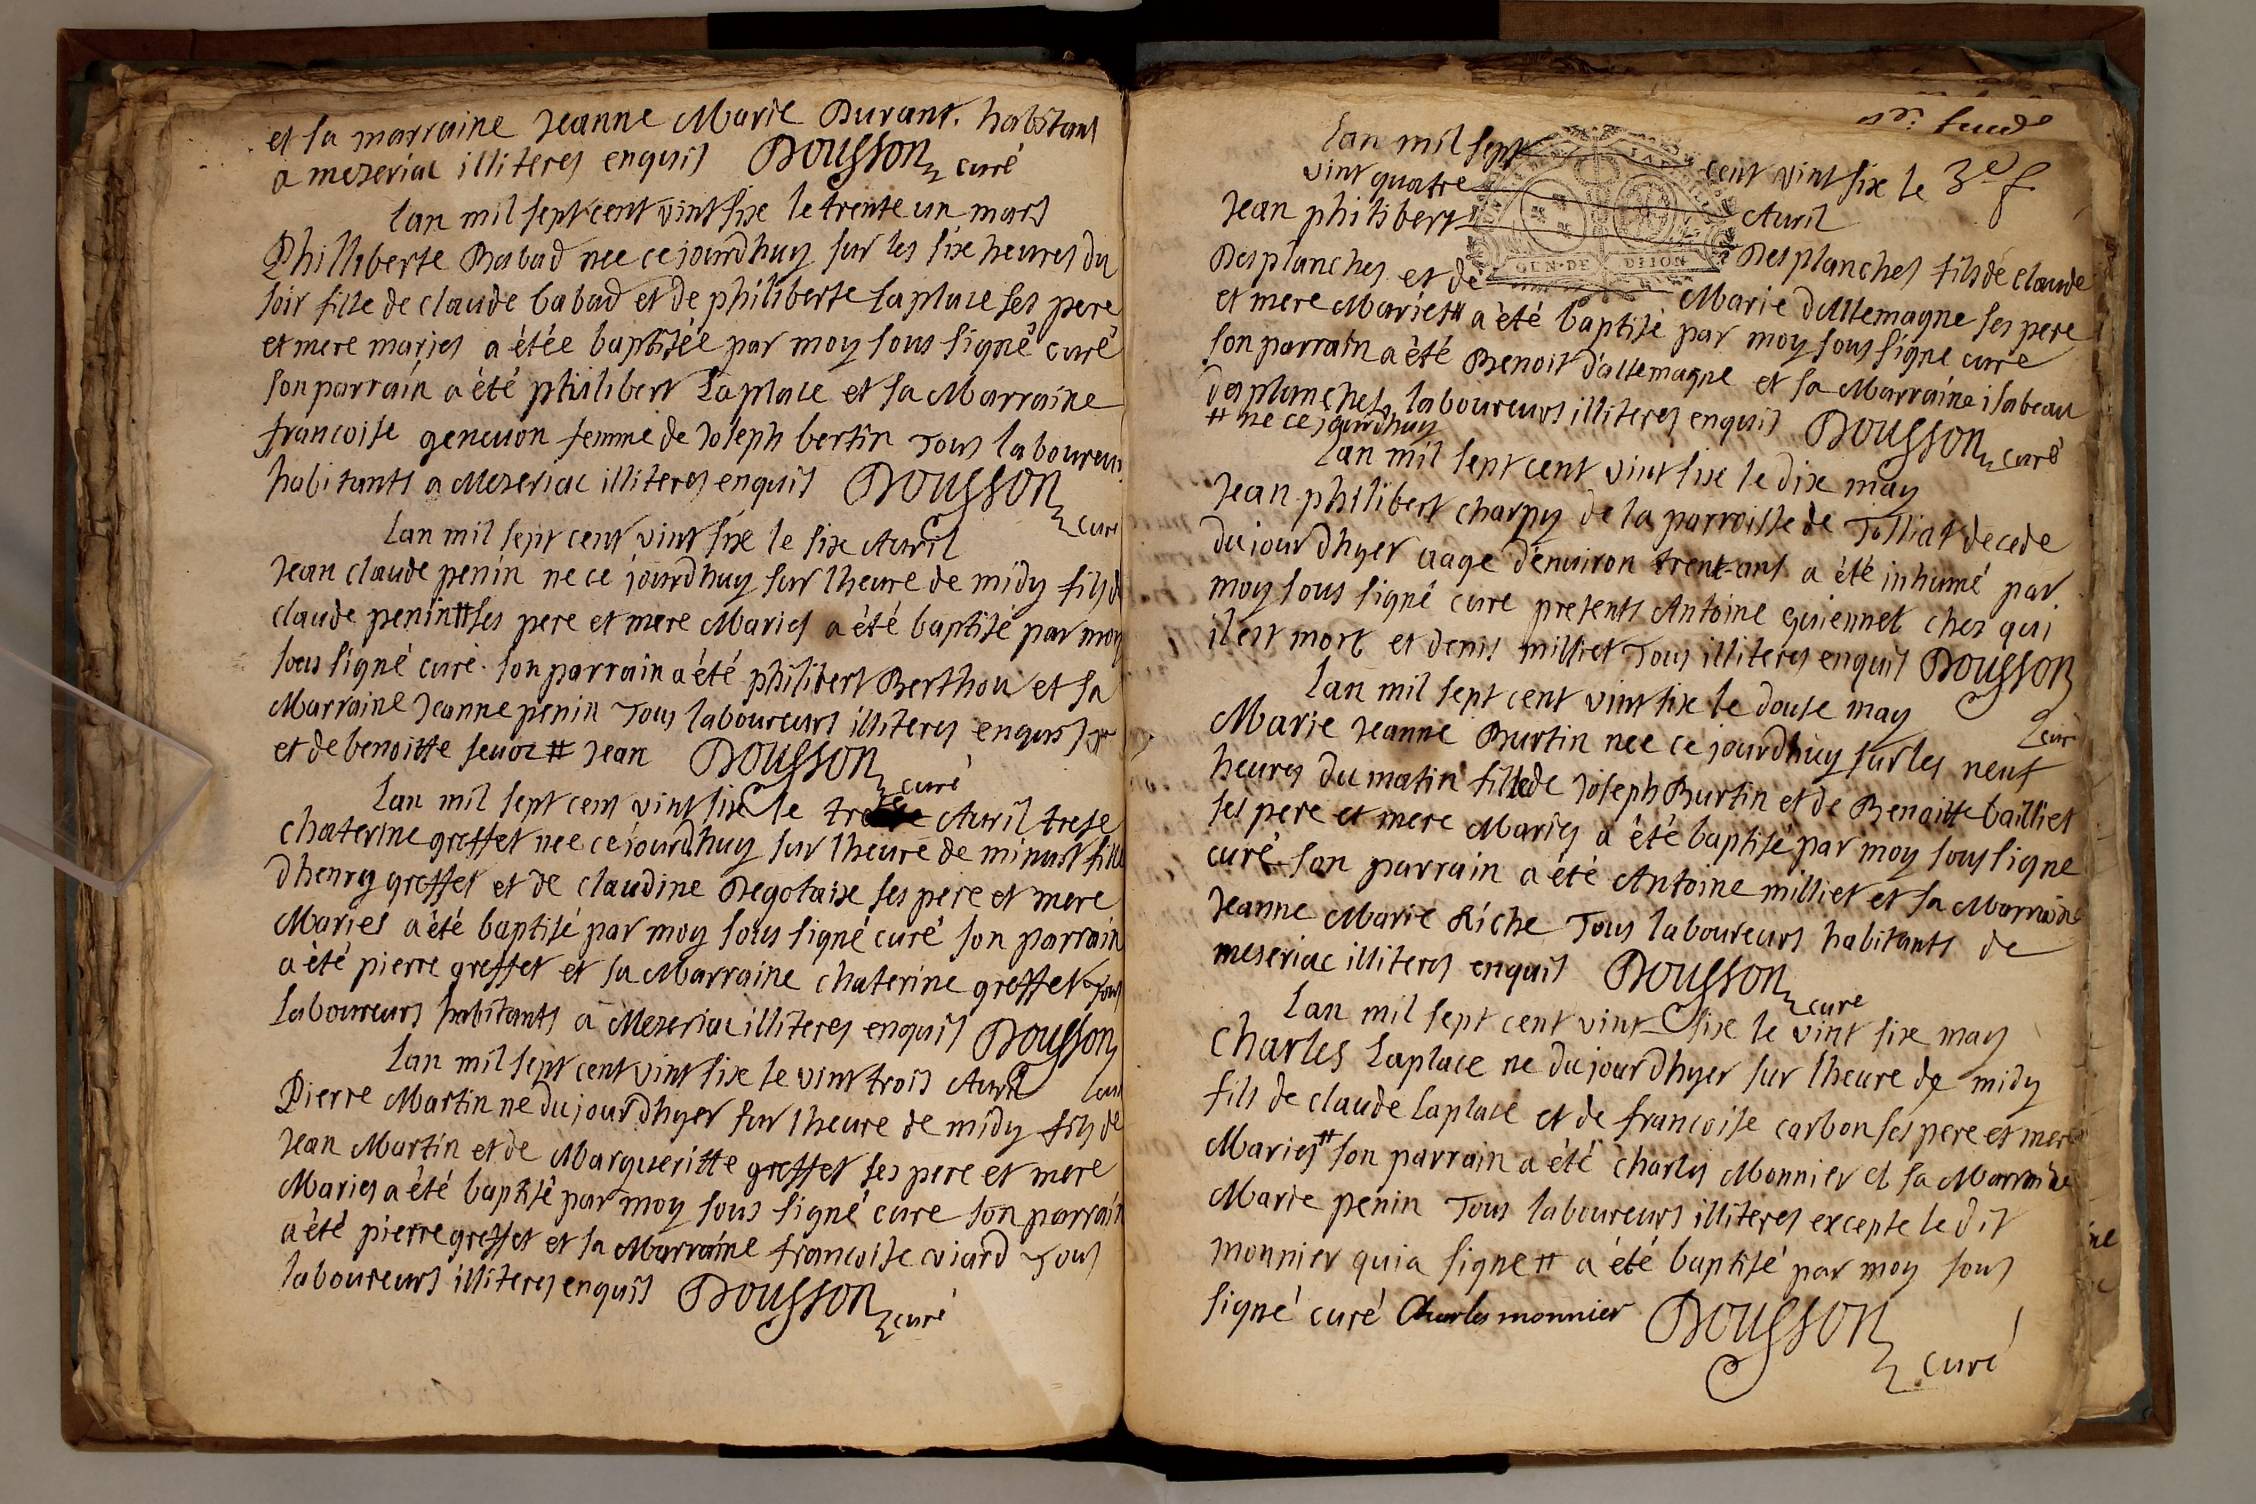 et sa marraine Jeanne Marie Durant. habitant
a meseriac illiteres enquis Dousson curé
Lan mil sept cent vint sixe le trente un mars
Philliberte Babad nee ce jourdhuy sur les sixe heures du
soir fille de claude babad et de philiberte laplace ses pere
et mere maries a étée baptisée par moy sous signé curé
son parrain a été philibert Laplace et sa Marraine
francoise geneuon femme de Joseph bertin Tous laboureurs
habitants a Meseriac illiteres enquis Dousson curé
Lan mil sept cent vint sixe le sixe Auril
Jean claude penin ne ce jourdhuy sur lheure de midy fils de
claude penin # ses pere et mere Maries a été baptisé par moy
sous signé curé. son parrain a été philibert Berthou et sa
Marraine Jeanne penin Tous laboureurs illiteres enquis #
et de benoitte seuoz # Jean Dousson curé
Lan mil sept cent vint sixe le Auril trese
chaterine greffet nee ce jourdhuy sur lheure de minuit fille
dhenry greffet et de claudine Degolaixe ses pere et mere
Maries a été baptisé par moy sous signé curé son parrain
a été pierre greffet et sa Marraine chaterine greffet Tous
Laboureurs habitants a Meseriac illiteres enquis Dousson
Lan mil sept cent vint sixe le vint trois Auril curé
Pierre Martin ne du jourdhyer sur lheure de midy fils de
Jean Martin et de Margueritte greffet ses pere et mere
Maries a été baptisé par moy sous signé cure son parrain
a été pierre greffet et sa Marraine francoise coiard Tous
laboureurs illiteres enquis Dousson curé
Lan mil sept cent vint sixe le
vint quatre Auril
Jean philibert Desplanches fils de claude
GEN·DE DIJON
Desplanches et de Marie dallemagne ses pere
et mere Maries # a été baptisé par moy sous signe cure
son parrain a été Benoit dallemagne et sa Marraine isabeau
desplanches laboureurs illiteres enquis Dousson curé
# ne ce jourdhuy
Lan mil sept cent vint sixe le dixe may
Jean philibert charpy de la parroisse de Tolliat decede
du jour dhyer aage denuiron trent-ans a été inhumé par
moy sous signé cure presents Antoine guiennet ches qui
il est mort et denis milliet Tous illiteres enquis Dousson
curé
Lan mil sept cent vint sixe le douse may
Marie Jeanne Burtin nee ce jourdhuy sur les neuf
heures du matin fille de Joseph Burtin et de Benoitte bailliet
ses pere et mere Maries a été baptisé par moy sous signe
curé son parrain a été Antoine milliet et sa Marraine
Jeanne Marie Riche Tous laboureurs habitants de
meseriac illiteres enquis Dousson cure
Lan mil sept cent vint sixe le vint sixe may
Charles Laplace ne du jourdhyer sur lheure de midy
fils de claude Laplace et de francoise carbon ses pere et mere
Maries # son parrain a été charles Monnier et sa Marraine
Marie penin Tous laboureurs illiteres excepte le dit
monnier qui a signe # a été baptisé par moy sous
signé curé Charles monnier Dousson
curé